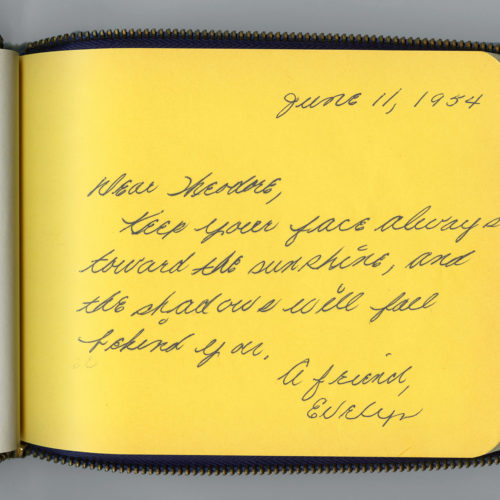 June 11, 1954
Dear Theodore,
Keep your face always
toward the sunshine, and
the shadows will fall
behind you.
A friend,
Evelyn